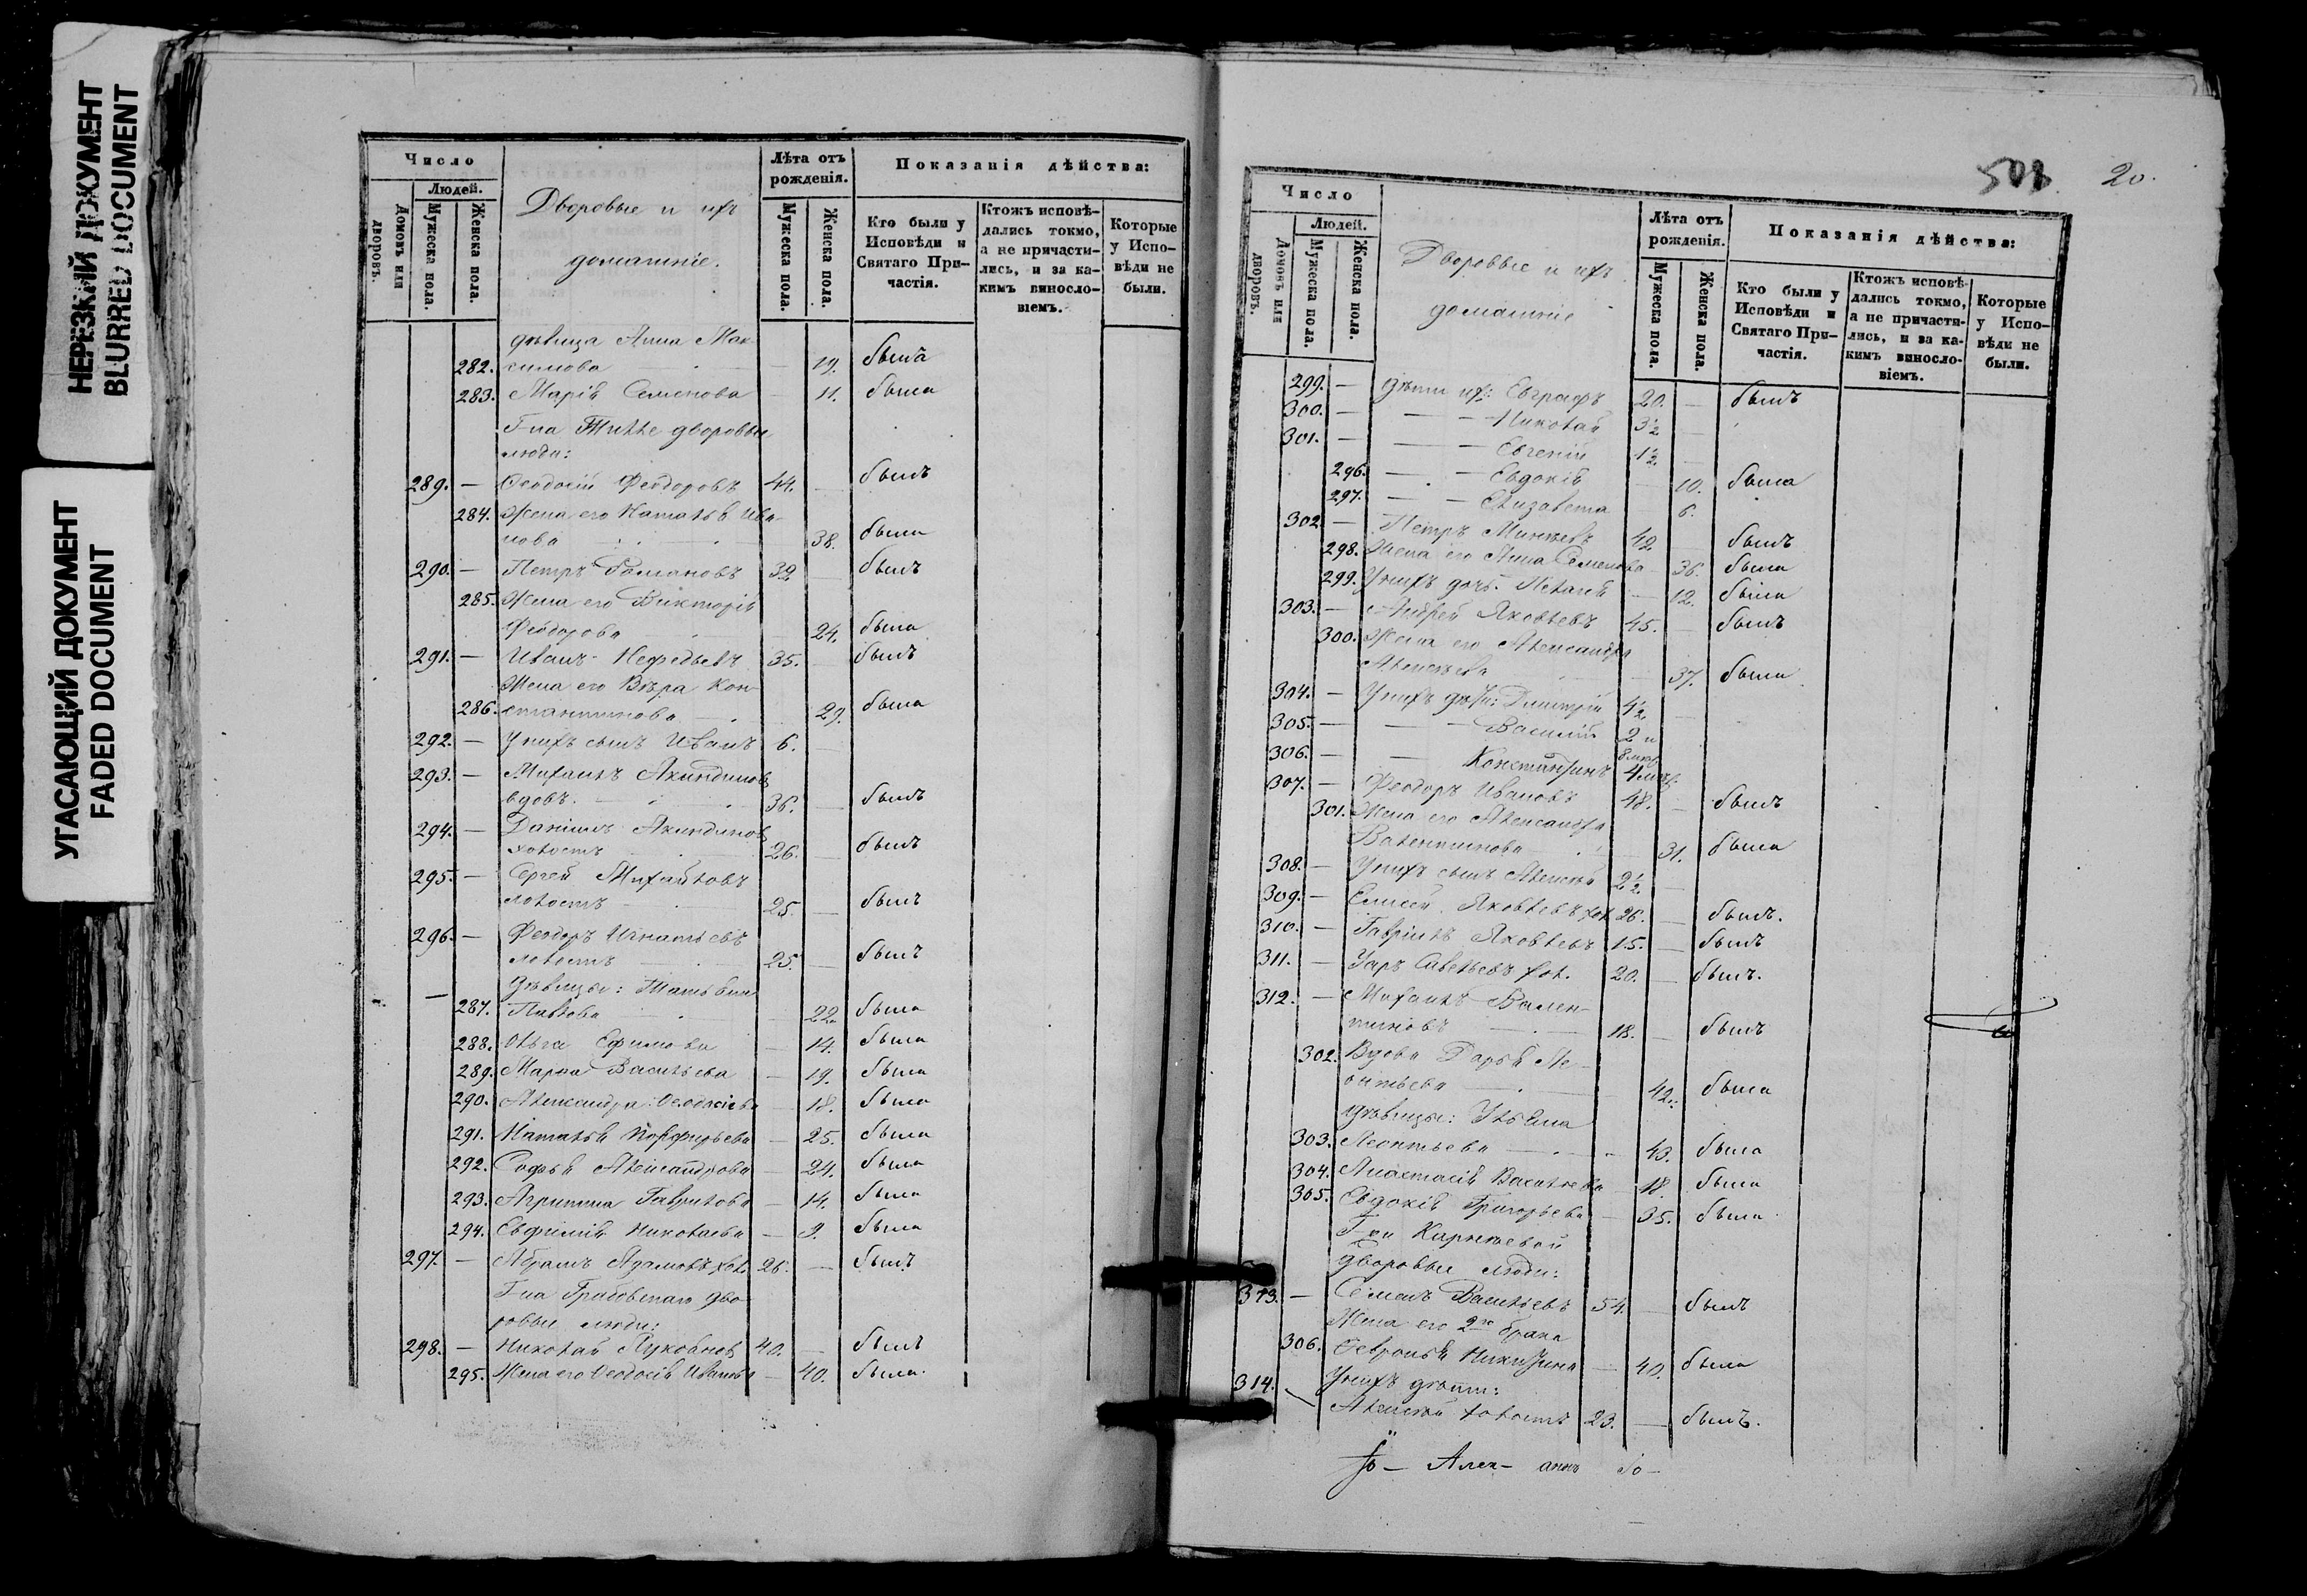 НЕРЕЗКИЙ ДОКУМЕНТ
BLURRED DOCUMENT
УГАСАЮЩИЙ ДОКУМЕНТ
FADED DOCUMENT
Число
Людей.
Домовъ или дворовъ.
Мужеска пола.
Женска пола.
Дворовые и ихъ
домашніе.
Лѣта отъ рожденія.
Мужеска пола.
Женска пола.
Показанія дѣйства:
Кто были у Исповѣди и Святаго Причастія.
Ктожъ исповѣдались токмо, а не причастились, и за какимъ винословіемъ.
Которые у Исповѣди не были.
дѣвица Анна Мак-
282. симова — 19. была
283. Марія Семенова — 11. была
Г-на Титте дворовые
люди:
289. — Ѳеодосій Феодоровъ 44. — былъ
284. Жена его Наталья Ива-
нова 38. была
290. — Петръ Романовъ 32 былъ
285. Жена его Викторія
Феодорова — 24. была
291. — Иванъ Нефедьевъ 35. — былъ
Жена его Вѣра Кон-
286. стантинова — 29. была
292. — У нихъ сынъ Иванъ 6. —
293. — Михаилъ Акиндиновъ
вдовъ. — 36. — былъ
294. — Даніилъ Акиндиновъ
холостъ 26. — былъ
295. — Сергей Михайловъ
холостъ — 25. — былъ
296. — Феодоръ Игнатьевъ
холостъ — 25. — былъ
— Дѣвицы: Татьяна
287. Павлова — 22 была
288. Ольга Ефимова — 14. была
289. Марѳа Васильева — 19. была
290. Александра Ѳеодосіева — 18. была
291. Наталья Порфирьева — 25. была
292. Софья Александрова — 24. была
293. Агрипина Гаврилова — 14. была
294. Евфимія Николаева — 9. была
297. — Абрамъ Адамовъ хол. 26. — былъ
Г-на Грабовскаго дво-
ровые люди:
298. — Николай Лукояновъ 40. — былъ
295. Жена его Ѳеодосія Иванова — 40. была
508 20.
Число
Людей.
Домовъ или дворовъ.
Мужеска пола.
Женска пола.
Дворовые и ихъ
домашніе
Лѣта отъ рожденія.
Мужеска пола.
Женска пола.
Показанія дѣйства:
Кто были у Исповѣди и Святаго Причастія.
Ктожъ исповѣдались токмо, а не причастились, и за какимъ винословіемъ.
Которые у Исповѣди не были.
299. — Дѣти ихъ: Евграфъ 20. — былъ
300. — — — Николай 3½ —
301. — — — Евгеній 1½ —
296. — — Евдокія — 10. была
297. — — Елизавета — 6.
302. — Петръ Минѣевъ 42 былъ
298. Жена его Анна Семенова — 36. была
299. У нихъ дочь Пелагея — 12. была
303. — Андрей Яковлевъ 45. — былъ
300. Жена его Александра
Алексѣева — 37. была
304. — У нихъ дѣти: Димитрій 4½ —
305. — — — Василій 2 и
8 мѣс.
306. — — Константинъ 4 мѣс.
307. — Феодоръ Ивановъ 48. — былъ
301. Жена его Александра
Валентинова — 31. была
308. — У нихъ сынъ Алексѣй 2½ —
309. — Елисей Яковлевъ хол. 26. — былъ.
310. — Гавріилъ Яковлевъ 15. — былъ
311. — Уаръ Савельевъ хол. 20. — былъ.
312. — Михаилъ Вален-
тиновъ — 18. — былъ
302. Вдова Дарья Ле-
онтьева — 42. была
Дѣвицы: Ульяна
303. Леонтьева — 43. была
304. Анастасія Васильева — 18. была
305. Евдокія Григорьева — 35. была
Г-жи
дворовые люди:
313. — Семенъ Васильевъ 54. — былъ
Жена его 2го брака
306. Февронья Никитина — 40. была
У нихъ дѣти:
314. — Алексѣй холостъ 23. — былъ.